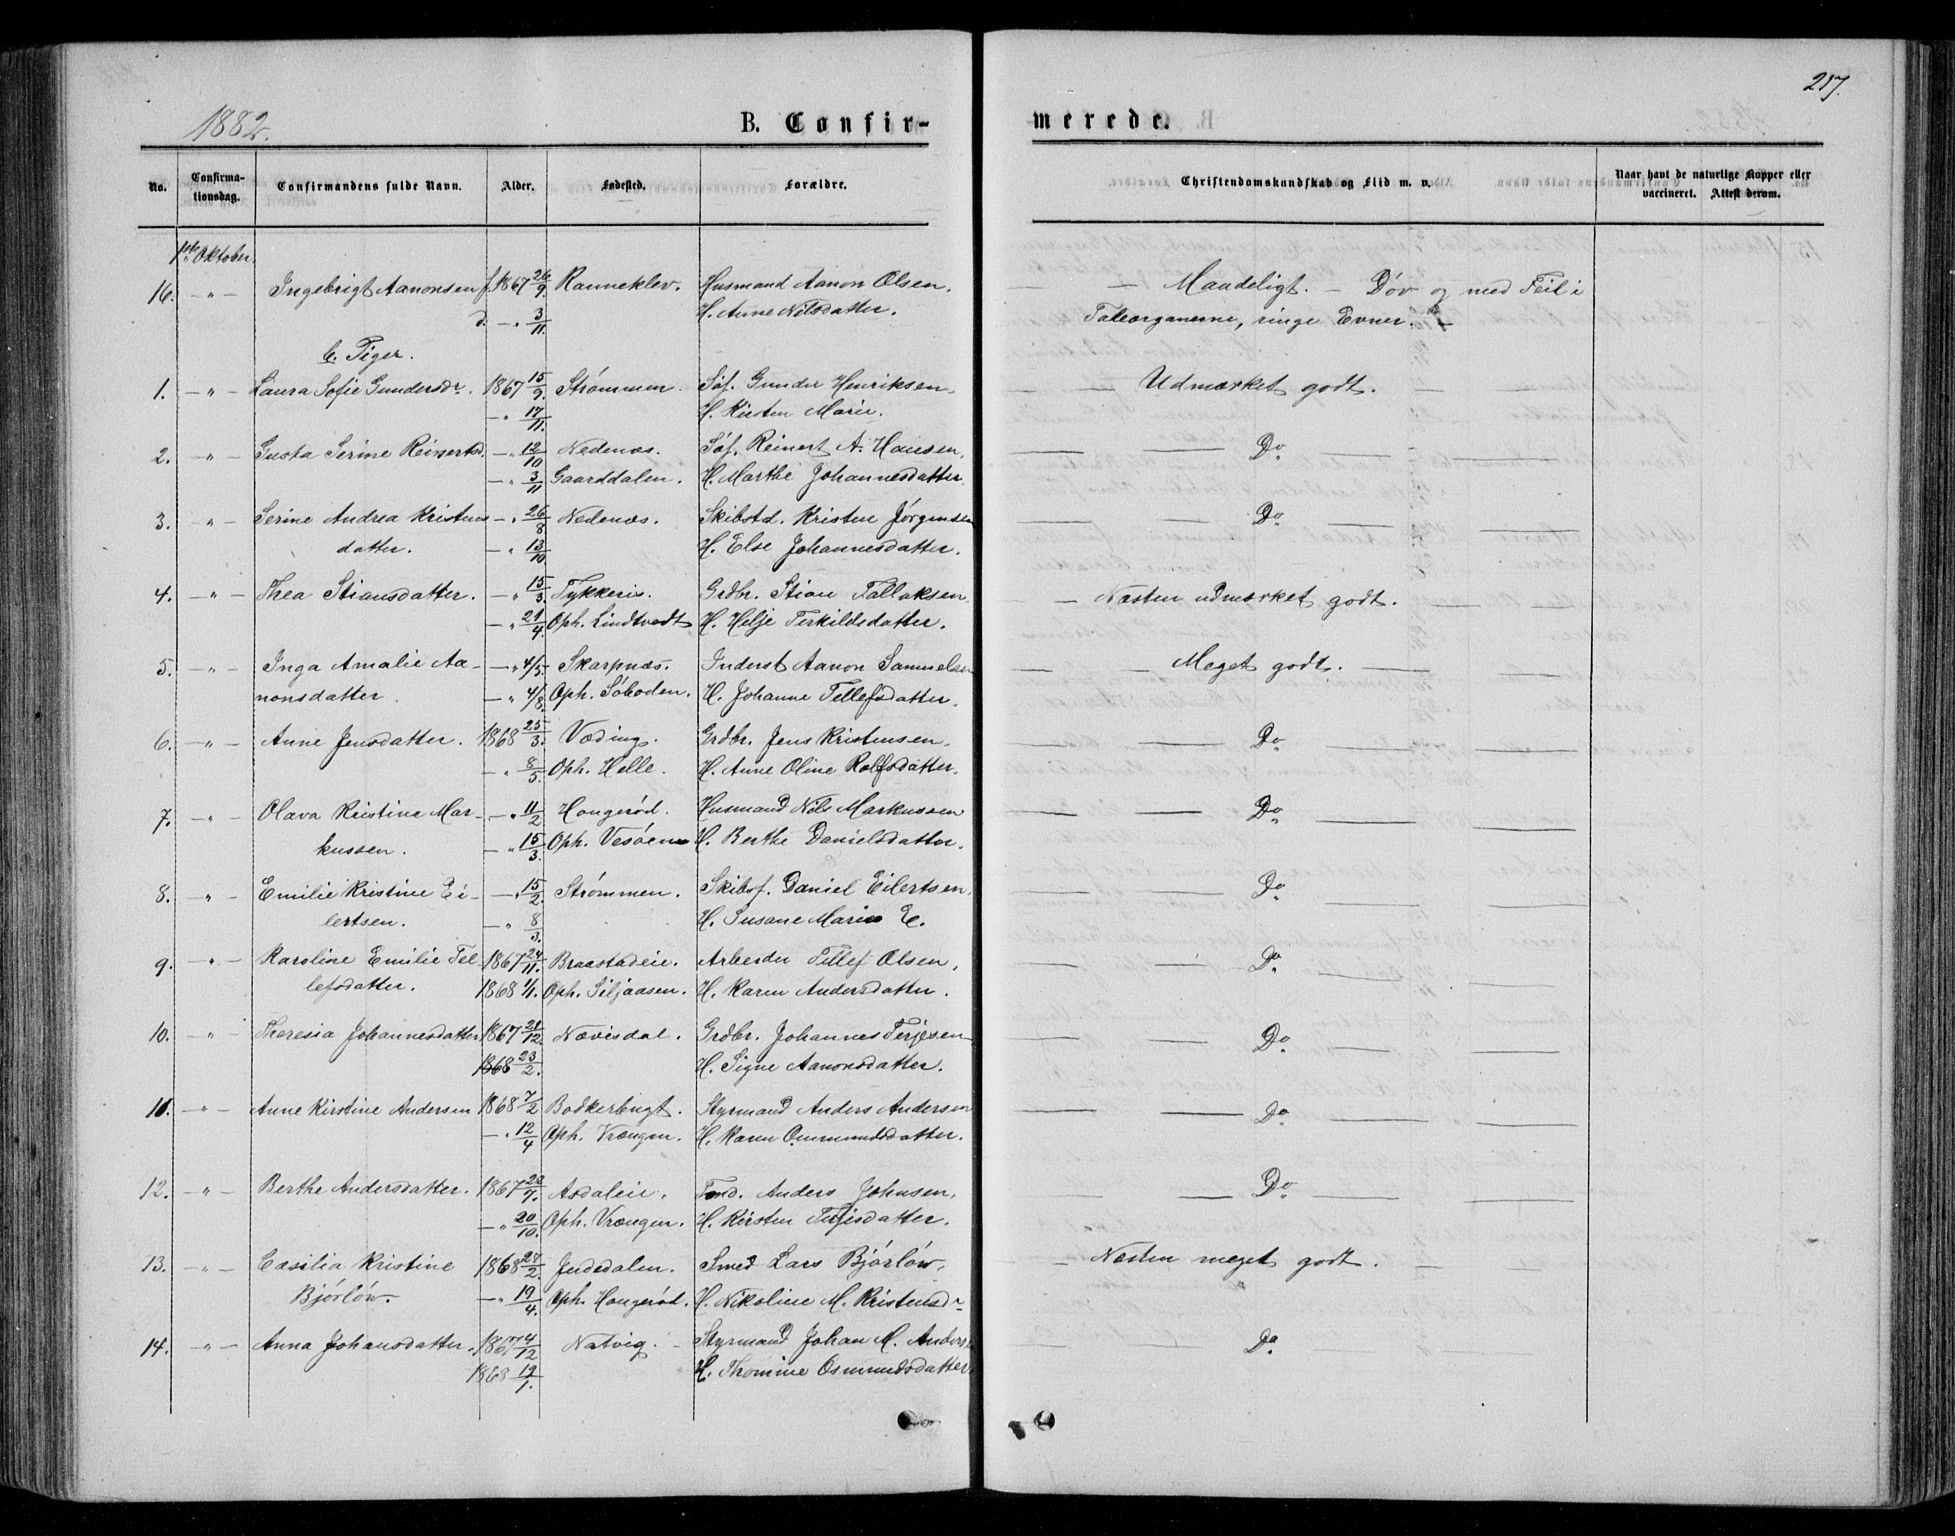 217.
1882.
B. Confir-
merede.
No.
Confirma-
tionsdag.
Confirmandens fulde Navn.
Alder.
Fødested.
Forældre.
Christendomskundskab og Flid m. v.
Naar havt de naturlige Kopper eller
vaccineret. Attest derom.
1ste Oktober.
16. — " — Ingebrigt Aanonsen f. 1867 26/9. Ranneklev. Husmand Aanon Olsen, — Maadeligt. — Døv og med Feil i
d. — " 3/11. H. Anne Nilsdatter. Taleorganerne, ringe Evner. —
b. Piger.
1. — " — Laura Sofie Gundersdr. 1867 15/9. Strømmen. Søf. Gunder Henriksen, Udmærket godt.
— " 17/11. H. Kirsten Marie.
2. — " — Gusta Serine Reinertsd. — " 12/10 Nedenæs. Søf. Reinert A. Hansen, Do
— " 3/11 Gaarddalen. H. Marthe Johannesdatter.
3. — " — Serine Andrea Kristens — " 26/8 Nedenæs. Skibstd. Kristen Jørgensen Do
datter. — " 13/10 H. Else Johannesdatter.
4. — " — Thea Stiansdatter. — " 15/3. Tykkeris. Grdbr. Stian Tallaksen — Næsten udmærket godt.
— " 21/4. Oph. Lindtvedt H. Helje Terkildsdatter.
5. — " — Inga Amalie Aa- — " 4/5. Skarpnæs. Inderst Aanon Samuelsen — Meget godt.
nonsdatter. — " 4/8. Oph. Søboden. H. Johanne Tellefsdatter.
6. — " — Anne Jensdatter. 1868 25/3. Væding. Grdbr. Jens Kristensen. Do
— " 8/5. Oph. Helle. H. Anne Oline Rolfsdatter.
7. — " — Olava Kristine Mar- — " 11/2 Hougerød. Husmand Nils Markussen Do
kussen. — " 15/3. Oph. Vesøen H. Berthe Danielsdatter.
8. — " — Emilie Kristine Ei- — " 15/2. Strømmen. Skibsf. Daniel Eilertsen, Do
lertsen. — " 8/3. H. Susane Marie E.
9. — " — Karoline Emilie Tel- 1867 24/11. Braastadeie. Arbeider Tellef Olsen, Do
lefsdatter. 1868 1/1. Oph. Siljaasen. H. Karen Andersdatter.
10. — " — Theresia Johannesdatter 1867 21/12. Nævisdal. Grdbr. Johannes Terjesen Do
1868 23/2. H. Signe Aanonsdatter.
11. — " — Anne Kirstine Andersen 1868 7/2 Bødkerbugt. Styrmand Anders Andersen Do
— " 12/4 Oph. Vrængen. H. Karen Ommundsdatter.
12. — " — Berthe Andersdatter. 1867 22/7. Asdaleie. Anders Johnsen, Do
— " 20/10. Oph. Vrængen. H. Kirsten Terjesdatter.
13. — " — Cæsilia Kristine 1868 27/2. Judedalen. Smed Lars Bjørlöw, — Næsten meget godt.
Bjørlöw. — " 19/4. Oph. Hougerød. H. Nikoline M. Kristensdr
14. — " — Anna Johansdatter. 1867 4/12 Natvig. Styrmand Johan M. Anders Do
1868 12/1. H. Thomine Osmundsdatter.